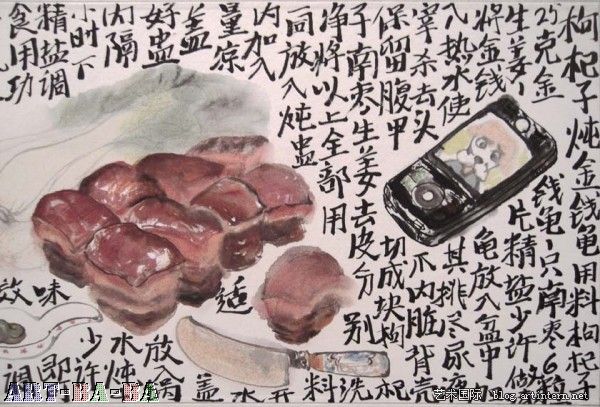 枸杞子炖金钱龟用料枸杞子
25克金钱龟1只南枣6粒
生姜1片精盐少许做法
将金钱龟放入盆中
入热水使其排尽尿
宰杀去头爪内脏背壳
保留腹甲切成块枸杞
子南枣生姜去皮分别洗
净将以上全部用料
同放入炖盅
内加入适
量凉水
盖
好盅放入
内隔水炖
小时下少许
精盐调味即
食用功效调
ART-BA-BA
艺术国际 blog.artintern.net